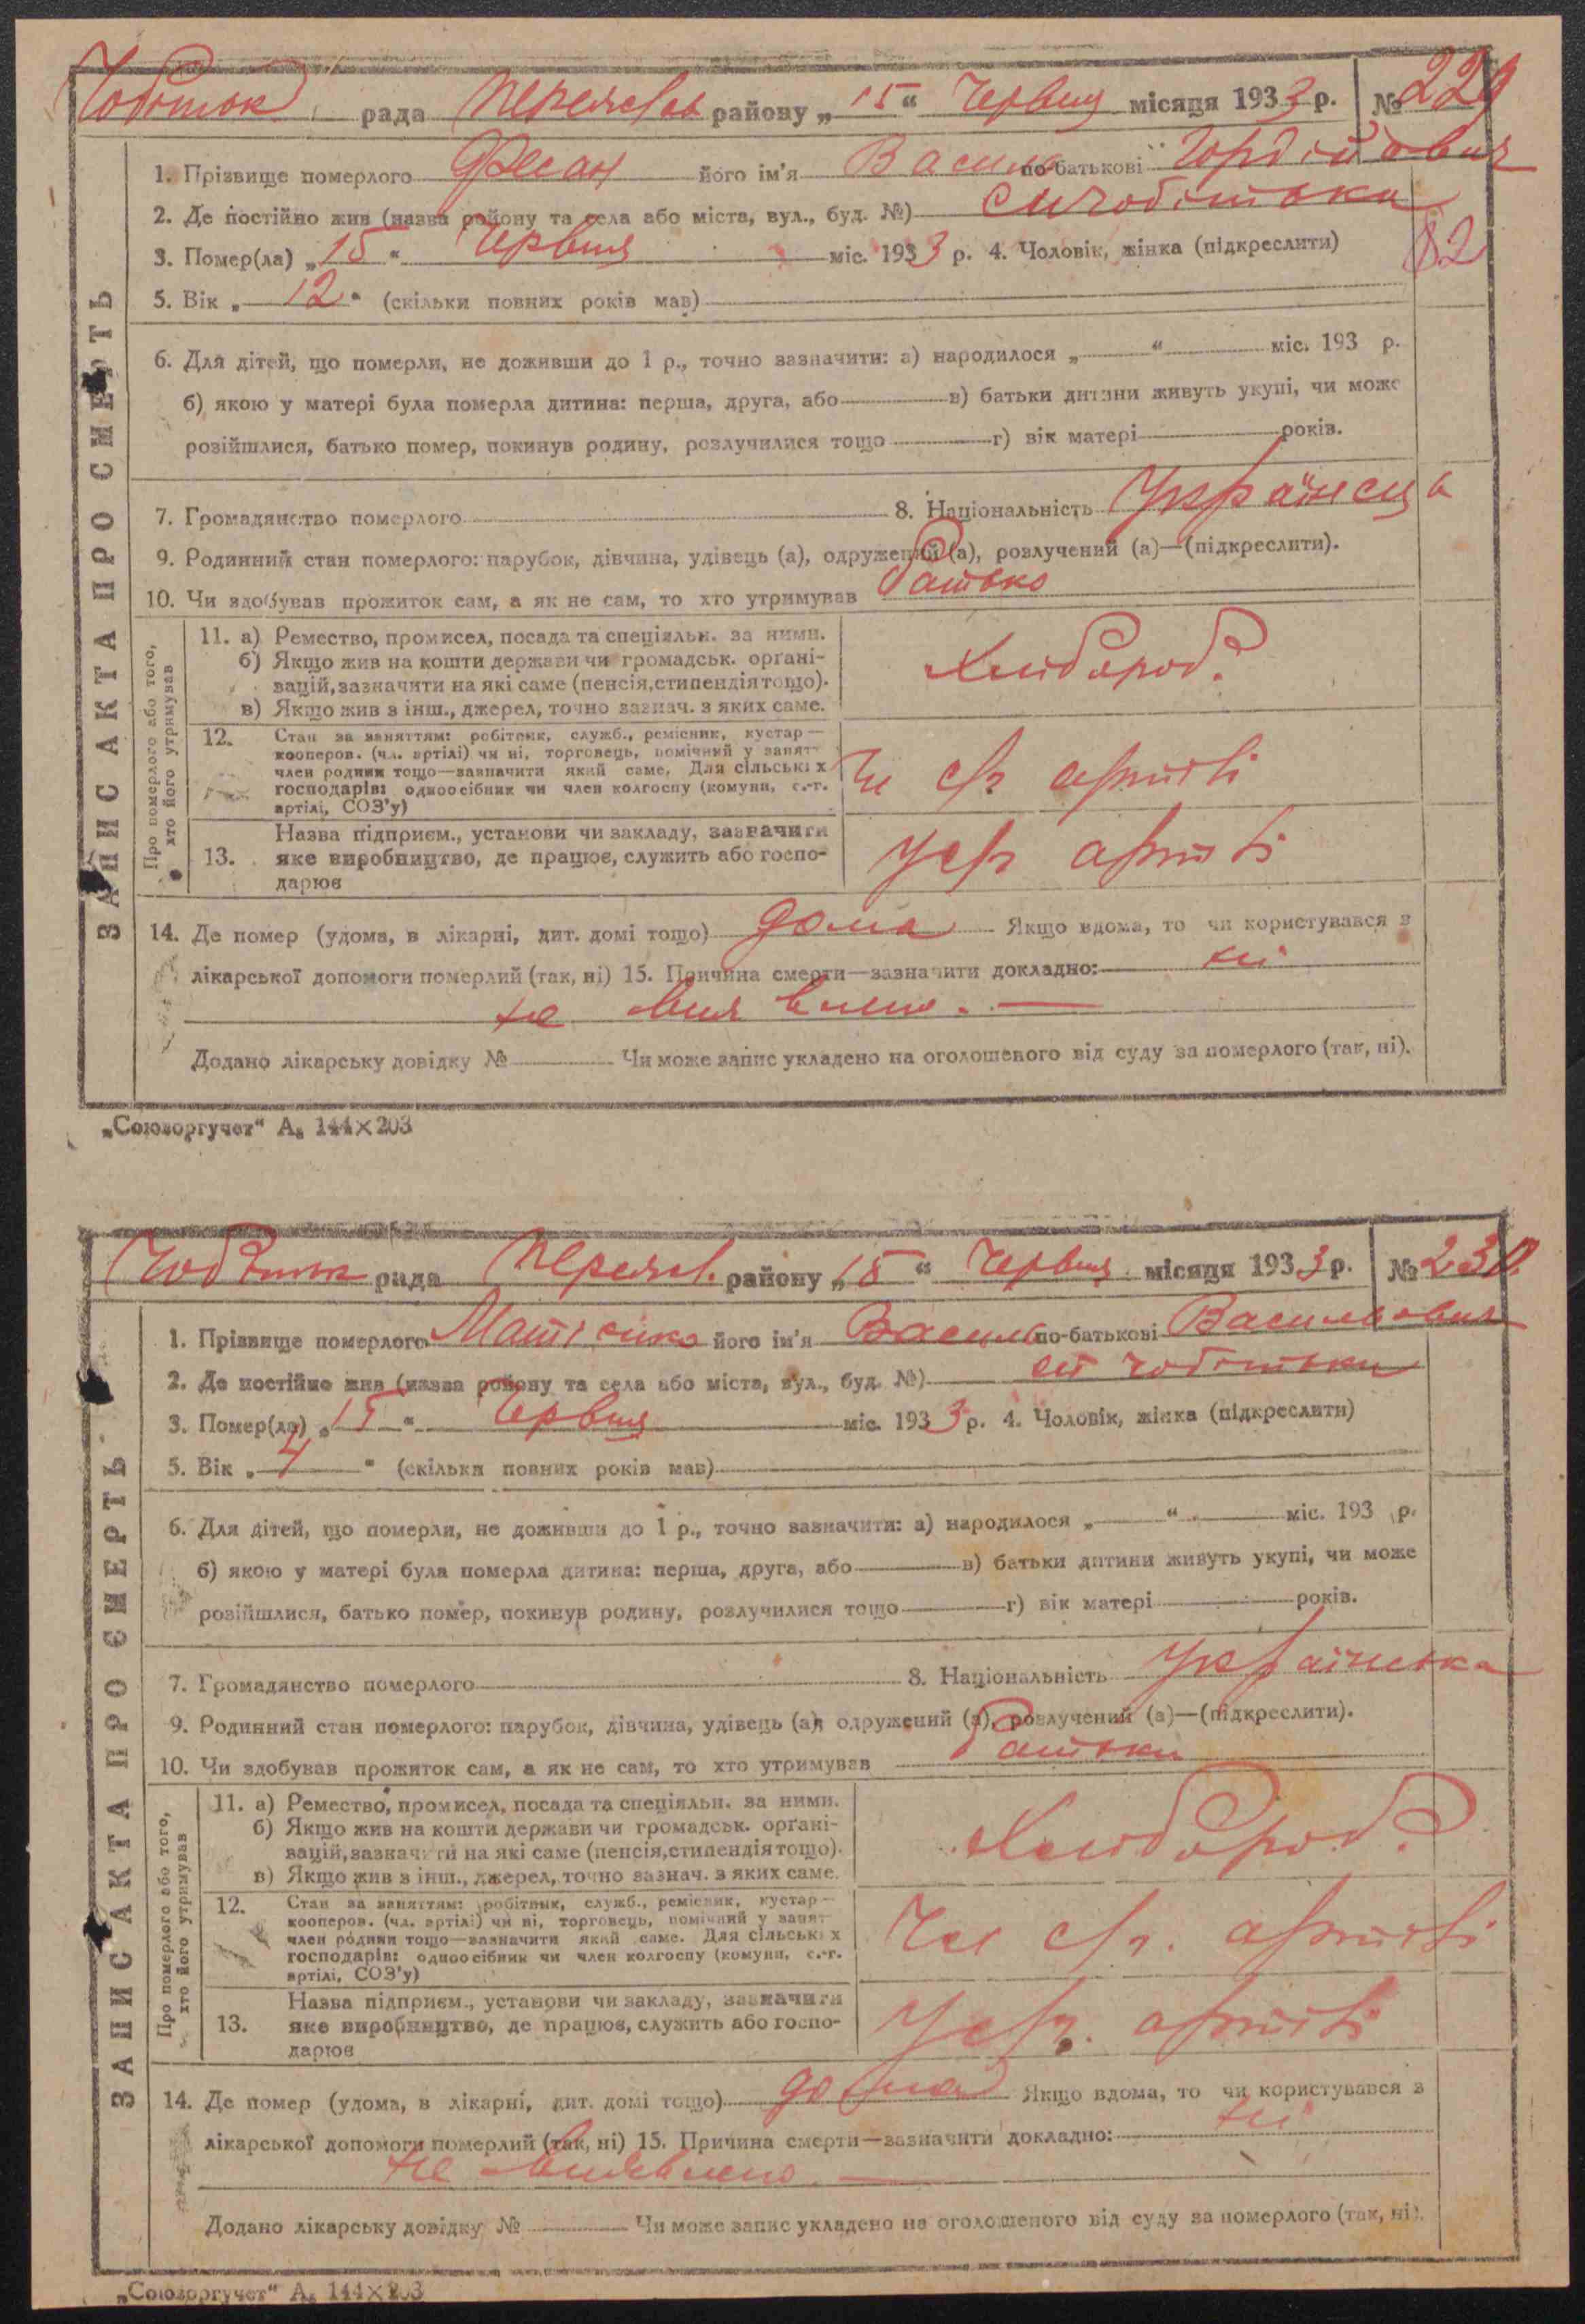 Чобіток рада Переяслав району „15“ Червня місяця 1933 р. № 229
ЗАПИС АКТА ПРО СМЕРТЬ
1. Прізвище померлого Фесан його ім'я Василь по-батькові Гордійович
2. Де постійно жив (назва району та села або міста, вул., буд. №) с Чобітьки
3. Помер(ла) „15“ Червня міс. 1933 р. 4. Чоловік, жінка (підкреслити)
82
5. Вік „12“ (скільки повних років мав)
6. Для дітей, що померли, не доживши до 1 р., точно зазначити: а) народилося „ “ міс. 193 р.
б) якою у матері була померла дитина: перша, друга, або в) батьки дитини живуть укупі, чи може
розійшлися, батько помер, покинув родину, розлучилися тощо г) вік матері років.
7. Громадянство померлого 8. Національність
9. Родинний стан померлого: парубок, дівчина, удівець (а), одружений (а), розлучений (а)—(підкреслити).
10. Чи здобував прожиток сам, а як не сам, то хто утримував батько
Про померлого або того, хто його утримував
11. а) Ремество, промисел, посада та спеціяльн. за ними.
б) Якщо жив на кошти держави чи громадськ. організацій, зазначити на які саме (пенсія, стипендія тощо).
в) Якщо жив з інш., джерел, точно зазнач. з яких саме.
Хлібороб.
12. Стан за заняттям: робітник, служб., ремісник, кустар—
кооперов. (чл. артілі) чи ні, торговець, помічний у занят-
член родини тощо—зазначити який саме. Для сільських
господарів: одноосібник чи член колгоспу (комуни, с.-г.
артілі, СОЗ'у)
Чл с/г артілі
13. Назва підприєм., установи чи закладу, зазначити
яке виробництво, де працює, служить або госпо-
дарює
У с/г артілі
14. Де помер (удома, в лікарні, дит. домі тощо) дома Якщо вдома, то чи користувався з
лікарської допомоги померлий (так, ні) 15. Причина смерти—зазначити докладно: ні
не виявлено.
Додано лікарську довідку № Чи може запис укладено на оголошеного від суду за померлого (так, ні).
„Союзоргучет“ А₅ 144×203
рада Переясл. району „15“ Червня місяця 1933 р. № 230
ЗАПИС АКТА ПРО СМЕРТЬ
1. Прізвище померлого його ім'я Василь по-батькові Васильович
2. Де постійно жив (назва району та села або міста, вул., буд. №) Чобітьки
3. Помер(ла) „15“ Червня міс. 1933 р. 4. Чоловік, жінка (підкреслити)
5. Вік „4“ (скільки повних років мав)
6. Для дітей, що померли, не доживши до 1 р., точно зазначити: а) народилося „ “ міс. 193 р.
б) якою у матері була померла дитина: перша, друга, або в) батьки дитини живуть укупі, чи може
розійшлися, батько помер, покинув родину, розлучилися тощо г) вік матері років.
7. Громадянство померлого 8. Національність Українська
9. Родинний стан померлого: парубок, дівчина, удівець (а), одружений (а), розлучений (а)—(підкреслити).
10. Чи здобував прожиток сам, а як не сам, то хто утримував батьки
Про померлого або того, хто його утримував
11. а) Ремество, промисел, посада та спеціяльн. за ними.
б) Якщо жив на кошти держави чи громадськ. організацій, зазначити на які саме (пенсія, стипендія тощо).
в) Якщо жив з інш., джерел, точно зазнач. з яких саме.
Хлібороб.
12. Стан за заняттям: робітник, служб., ремісник, кустар—
кооперов. (чл. артілі) чи ні, торговець, помічний у занят-
член родини тощо—зазначити який саме. Для сільських
господарів: одноосібник чи член колгоспу (комуни, с.-г.
артілі, СОЗ'у)
Чл с/г. артілі
13. Назва підприєм., установи чи закладу, зазначити
яке виробництво, де працює, служить або госпо-
дарює
У с/г. артілі
14. Де помер (удома, в лікарні, дит. домі тощо) дома Якщо вдома, то чи користувався з
лікарської допомоги померлий (так, ні) 15. Причина смерти—зазначити докладно: ні
не виявлено.
Додано лікарську довідку № Чи може запис укладено на оголошеного від суду за померлого (так, ні).
„Союзоргучет“ А₅ 144×203